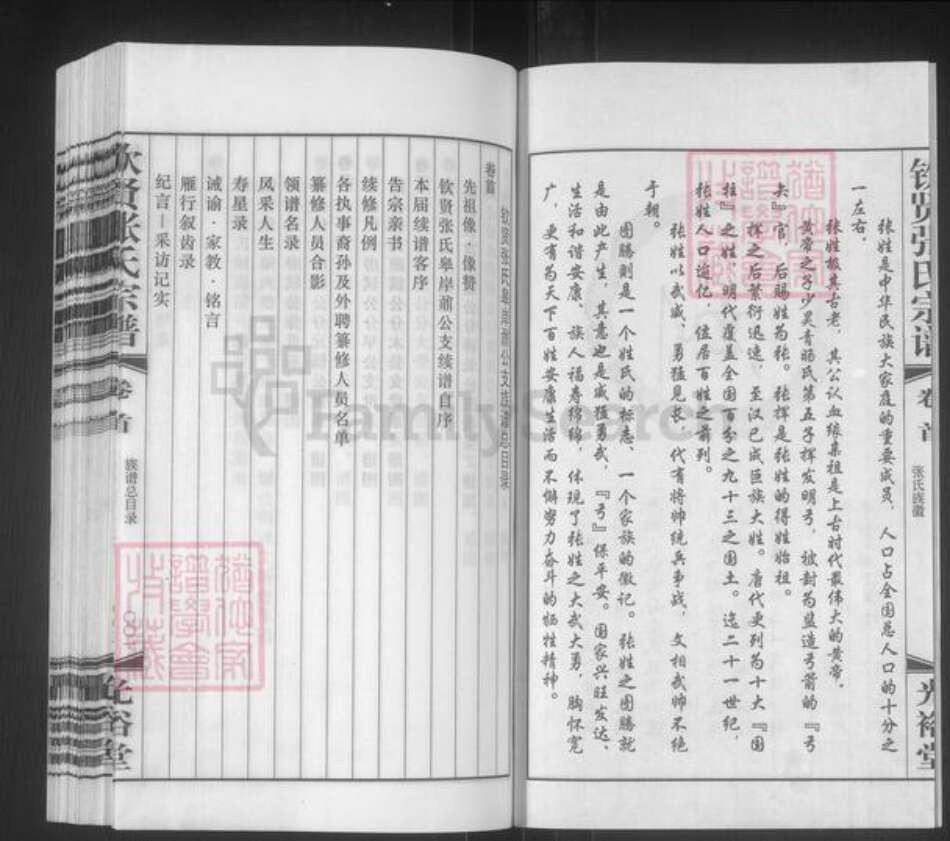 钦贤张氏宗谱
卷首
张氏族徽
光裕堂
张姓是中华民族大家庭的重要成员，人口占全国总人口的十分之
一左右。
张姓极其古老，其公认血缘集祖是上古时代最伟大的黄帝。
黄帝之子少昊青阳氏第五子挥发明弓，被封为监造弓箭的『弓
矢』官，后赐姓为张。张挥是张姓的得姓始祖。
挥之后繁衍迅速，至汉已成巨族大姓。唐代更列为十大『国
柱』之姓，明代覆盖全国百分之九十三之国土。迄二十一世纪，
张姓人口逾亿，位居百姓之前列。
张姓以武威、勇猛见长，代有将帅统兵争战，文相武帅不绝
于朝。
图腾则是一个姓氏的标志、一个家族的徽记。张姓之图腾就
是由此产生，其意也是威猛勇武，『弓』保平安。国家兴旺发达、
生活和谐安康、族人福寿绵绵，体现了张姓之大武大勇，胸怀宽
广，更有为天下百姓安康生活而不懈努力奋斗的牺牲精神。
钦贤张氏皋岸前公支族谱总目录
卷首
先祖像·像赞
钦贤张氏皋岸前公支续谱自序
本届续谱客序
告宗亲书
续修凡例
各执事裔孙及外聘纂修人员名单
纂修人员合影
领谱名录
风采人生
寿星录
诫谕·家教·铭言
雁行叙齿录
纪言－采访记实
钦贤张氏宗谱
卷首
族谱总目录
光裕堂
FamilySearch